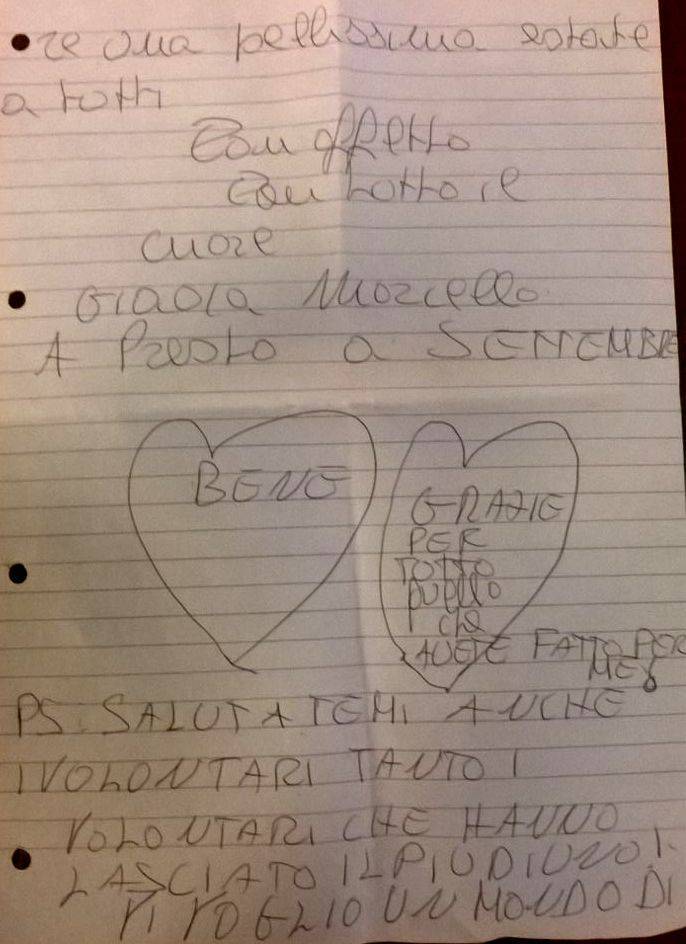 re una bellissima estate
a tutti
Con affetto
con tutto il
cuore
Giada Marcello
A Presto a SETTEMBRE
BENE
GRAZIE
PER
TUTTO
quello
che
AVETE FATTO PER
ME
PS. SALUTATEMI ANCHE
I VOLONTARI TANTO I
VOLONTARI CHE HANNO
LASCIATO IL PIU DI UNO
VI VOGLIO UN MONDO DI